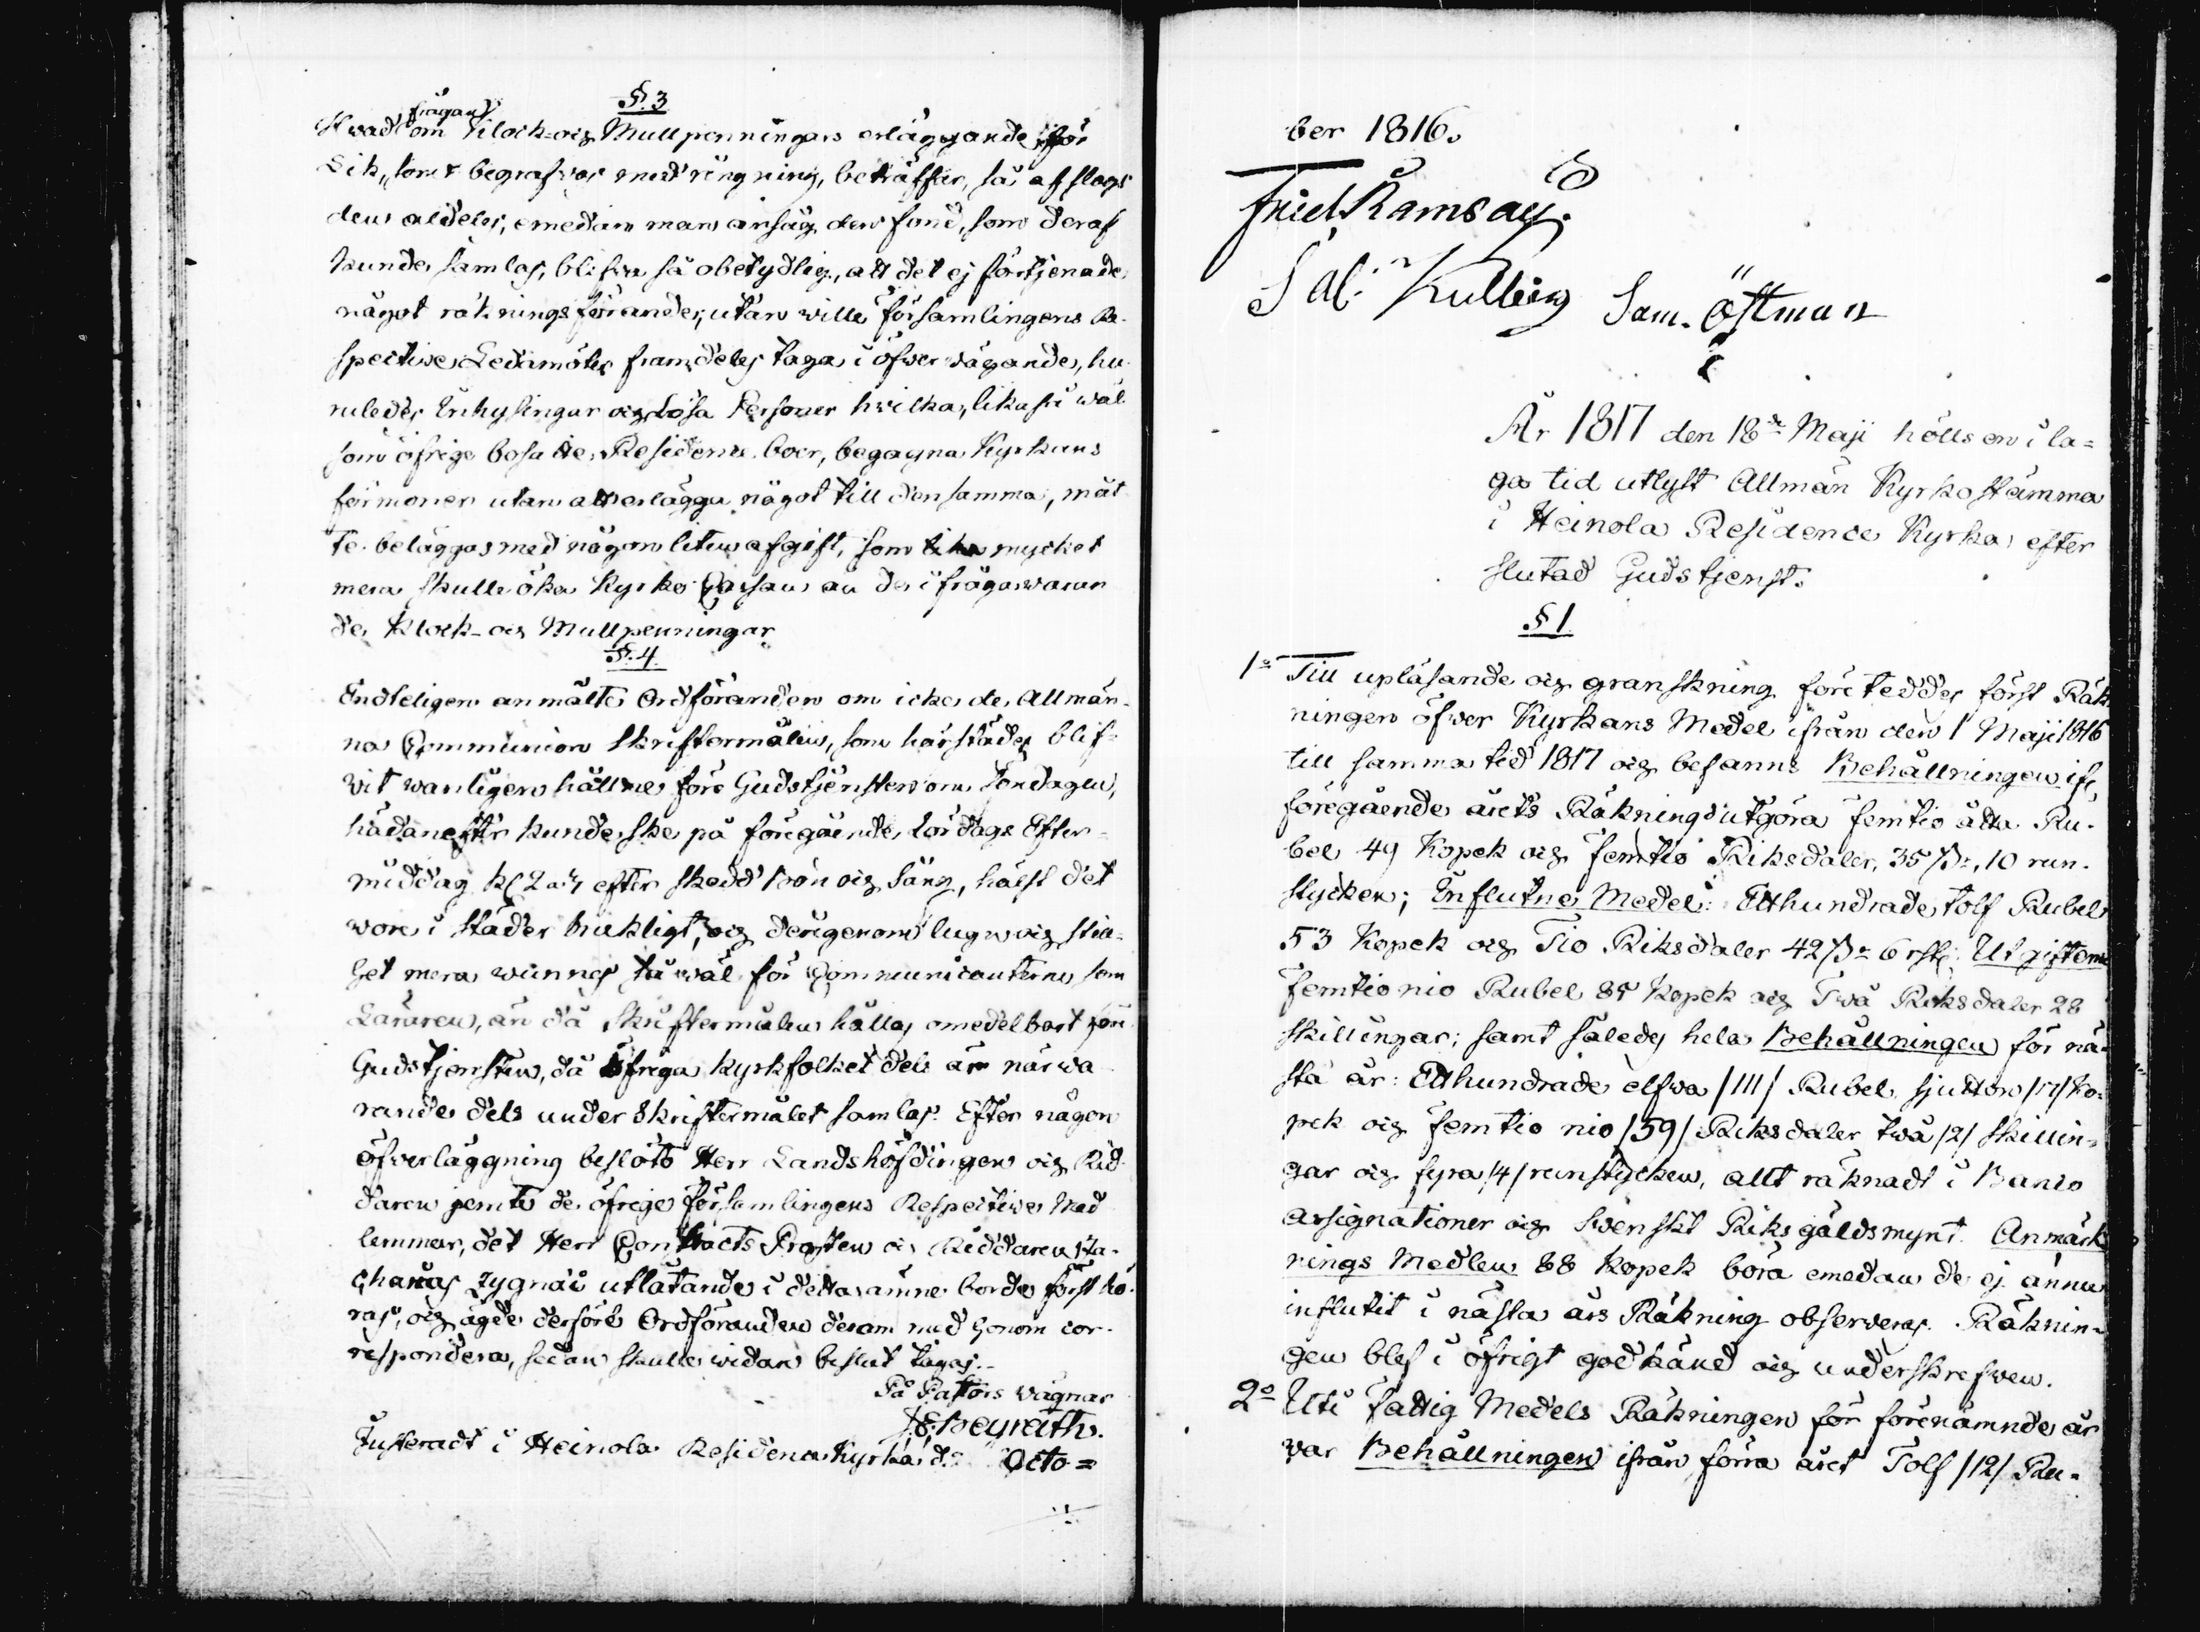 §. 3
frågan
Hwad om Klock- och Mullpenningars erläggande för
Lik, som begrafwas med ringning, beträffar, så afslogs
den aldeles, emedan man ansåg den fond, som deraf
kunde samlas, blifwa så obetydlig, att det ej förtjenade
något räknings förande, utan wille församlingens Re-
spective Ledamöter framdeles taga i öfwerwägande, hu-
ruledes Inhysingar och Lösa Personer hwilka, lika så wäl
som öfrige bosatte Residence boer, begagna Kyrkans
förmoner utan att erlägga något till densamma, måt-
te beläggas med någon liten afgift, som mycket
mera skulle öka Kyrko Cassan än de ifrågawaran
de Klock- och Mullpenningar
§. 4.
Endteligen anmälte Ordföranden om icke de Allmän-
na Communion Skriftermålen, som härstädes blif-
wit wanligen hållne före Gudstjensten om Söndagen,
hädanefter kunde ske på föregående Lördags Efter-
middag kl 2 a 3 efter skedd bön och sång, hälst det
wore i städer brukligt, och derigenom lugn och still-
het mera wunnes så wäl för Communicanterne som
Läraren, än då Skriftermålen hållas omedelbart före
Gudstjensten, då öfriga kyrkfolket dels är närwa
rande dels under Skriftermålet samlas. Efter någon
öfwerläggning beslöto Herr Landshöfdingen och Rid-
daren jemte de öfrige Församlingens Respective Med
lemmar, det Herr Contracts Prosten och Riddaren Za-
charias Zygnæi utlåtande i detta ämne borde först hö-
ras, och ägde derföre Ordföranden derom med honom cor-
respondera, sedan skulle widare beslut tagas.
På Pastors wägnar
J. E. Beyrath.
Justeradt i Heinola Residence Kyrka d. Octo=
ber 1816.
Fried. Ramsay.
Kulling Sam. Östman
År 1817 den 18de Maji hölls en i la=
ga tid utlyst Allmän Kyrkostämma
i Heinola Residence Kyrka efter
slutad Gudstjenst.
§ 1
1o Till upläsande och granskning företeddes först Räk
ningen öfwer Kyrkans Medel ifrån den 1 Maji 1816
till samma tid 1817 och befanns Behållningen ifr.
föregående årets Räkning utgöra femtio åtta Ru-
bel 49 Kopek och femtio Riksdaler, 35 s:, 10 run-
stycken; Influtne Medel: Etthundrade tolf Rubel
53 Kopek och Tio Riksdaler 42 s: 6 rst; Utgifterne
femtio nio Rubel 85 Kopek och Twå Riksdaler 28
skillingar; samt således hela Behållningen för nä-
sta år: Etthundrade elfwa /111/ Rubel sjutton /17/ Ko-
pek och femtio nio /59/ Riksdaler twå /2/ skillin-
gar och fyra /4/ runstycken, allt räknadt i Banco
assignationer och Swenskt Riksgäldsmynt. Anmärk
nings Medlen 88 Kopek böra emedan de ej ännu
influtit i nästa års Räkning observeras. Räknin-
gen blef i öfrigt godkänd och underskrefwen.
2o Uti Fattig Medels Räkningen för förenämnde år
war Behållningen ifrån förra året Tolf /12/ Ru-